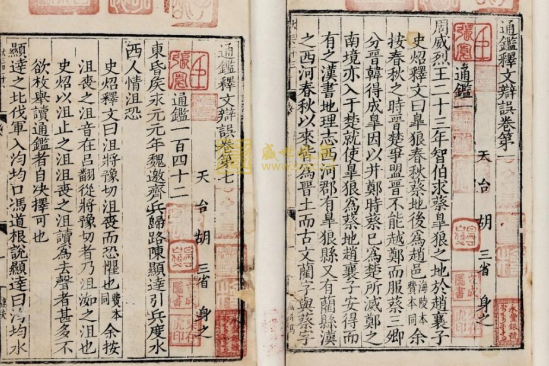 通鑑釋文辯誤卷第一
天台胡三省身之
通鑑一
周威烈王二十三年智伯求蔡皐狼之地於趙襄子
史炤釋文曰皐狼春秋蔡地後為趙邑海陵本費本同余
按春秋之時晉楚爭盟晉不能越鄭而服蔡三卿
分晉韓得成皐因以并鄭時蔡已為楚所滅鄭之
南境亦入于楚就使皐狼為蔡地趙襄子安得而
有之漢書地理志西河郡有皐狼縣又有藺縣漢
之西河春秋以來皆為晉土而古文藺字與蔡字
通鑑釋文辯誤卷第七
天台胡三省身之
通鑑一百四十二
東昏侯永元元年魏邀齊兵歸路陳顯達引兵度水
西人情沮恐
史炤釋文曰沮將豫切沮喪而恐懼也費本同余按
沮喪之沮音在呂翻從將豫切者乃沮洳之沮也
史炤以沮止之沮沮喪之沮讀為去聲者甚多不
欲枚舉讀通鑑者自決擇可也
顯達之北伐軍入汮均口馮道根說顯達曰汮均水